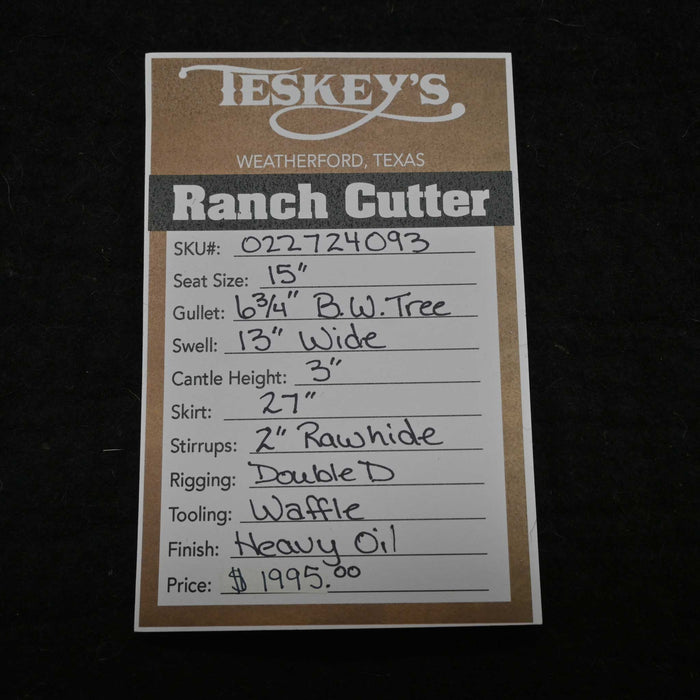 TESKEY'S
WEATHERFORD, TEXAS
Ranch Cutter
SKU#: 022724093
Seat Size: 15"
Gullet: 6 3/4" B.W. Tree
Swell: 13" Wide
Cantle Height: 3"
Skirt: 27"
Stirrups: 2" Rawhide
Rigging: Double D
Tooling: Waffle
Finish: Heavy Oil
Price: $ 1995.00